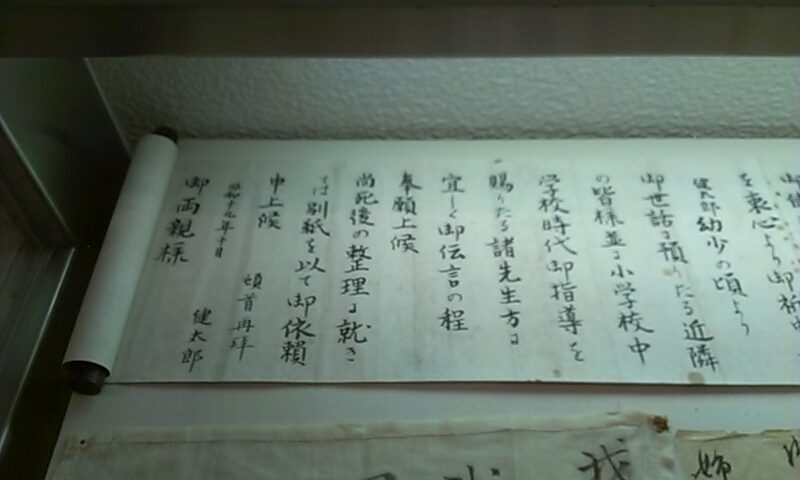 を衷心より御祈
健太郎幼少の頃より
御世話に預りたる近隣
の皆様並に小学校中
学校時代御指導を
賜りたる諸先生方に
宜しく御伝言の程
奉願上候
尚死後の整理に就き
ては別紙を以て御依頼
申上候
頓首再拝
昭和十九年十月
健太郎
御両親様
我
姉